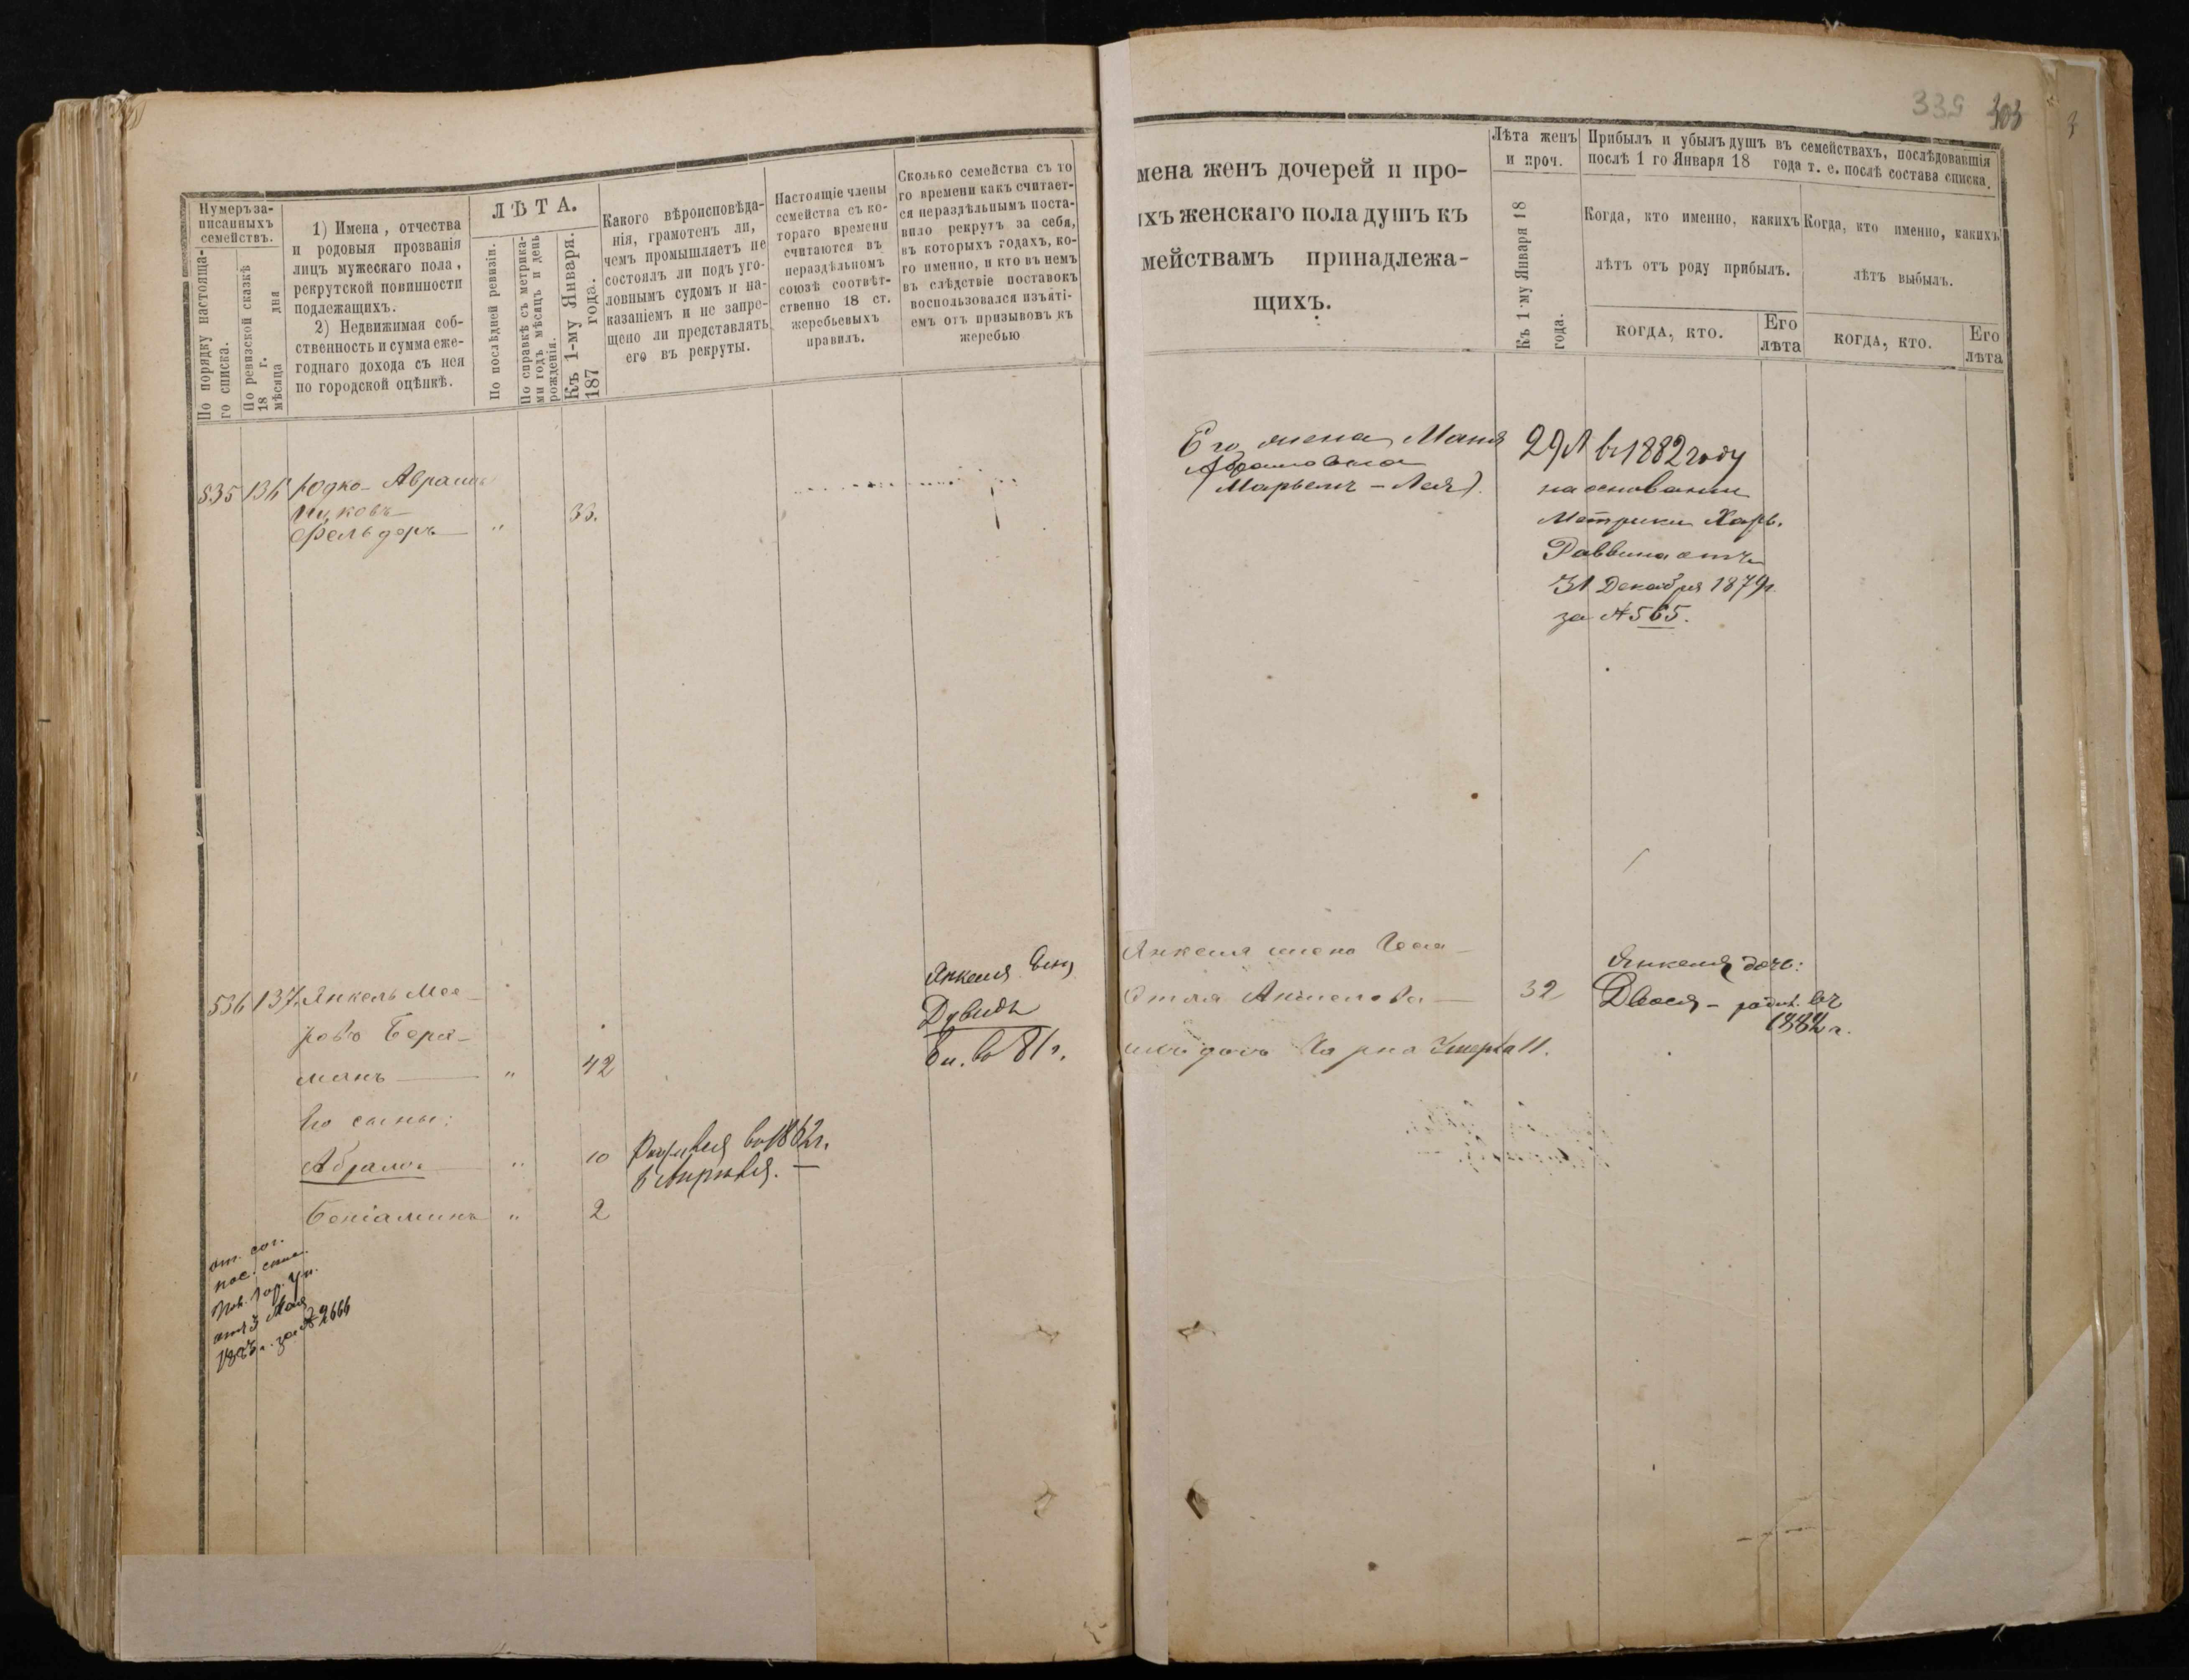 Нумеръ за-
писанныхъ
семействъ.
По порядку настояща-
го списка.
По ревизской сказкѣ
18 г.
мѣсяца дня
1) Имена, отчества
и родовыя прозванія
лицъ мужескаго пола,
рекрутской повинности
подлежащихъ.
2) Недвижимая соб-
ственность и сумма еже-
годнаго дохода съ нея
по городской оцѣнкѣ.
ЛѢТА.
По послѣдней ревизіи.
По справкѣ съ метрика-
ми годъ мѣсяцъ и день
рожденія.
Къ 1-му Января.
187 года.
Какого вѣроисповѣда-
нія, грамотенъ ли,
чемъ промышляетъ не
состоялъ ли подъ уго-
ловнымъ судомъ и на-
казаніемъ и не запре-
щено ли представлять
его въ рекруты.
Настоящіе члены
семейства съ ко-
тораго времени
считаются въ
нераздѣльномъ
союзѣ соотвѣт-
ственно 18 ст.
жеребьевыхъ
правилъ.
Сколько семейства съ то
го времени какъ считает-
ся нераздѣльнымъ поста-
вило рекрутъ за себя,
въ которыхъ годахъ, ко-
го именно, и кто въ немъ
въ слѣдствіе поставокъ
воспользовался изъяті-
емъ отъ призывовъ къ
жеребью
535 136 Юдко-Аврамъ
Ицковъ
Фельдеръ " 33.
536 137 Янкель Мее-
ровъ Бера-
манъ " 42
Его сыны:
Абрамъ " 10
Беніаминъ " 2
в 1862г.
Янкеля сынъ
Дувидъ
въ 81г.
от. сог.
Гор. Уп.
отъ 3 Мая
за № 2666
335 303
мена женъ дочерей и про-
ихъ женскаго пола душъ къ
мействамъ принадлежа-
щихъ.
Лѣта женъ
и проч.
Къ 1-му Января 18
года.
Прибылъ и убылъ душъ въ семействахъ, послѣдовавшія
послѣ 1 го Января 18 года т. е. послѣ состава списка.
Когда, кто именно, какихъ
лѣтъ отъ роду прибылъ.
Когда, кто именно, какихъ
лѣтъ выбылъ.
КОГДА, КТО.
Его
лѣта
КОГДА, КТО.
Его
лѣта
Его жена Маня
Абрамовна
(Марьемъ-Лея).
29 л въ 1882 году
на основании
Метрики Харь.
Раввина отъ
31 Декабря 1879г.
за № 565.
Янкеля жена
32
дочь Умерла 11.
Янкеля дочь:
Двося - въ
1882 г.